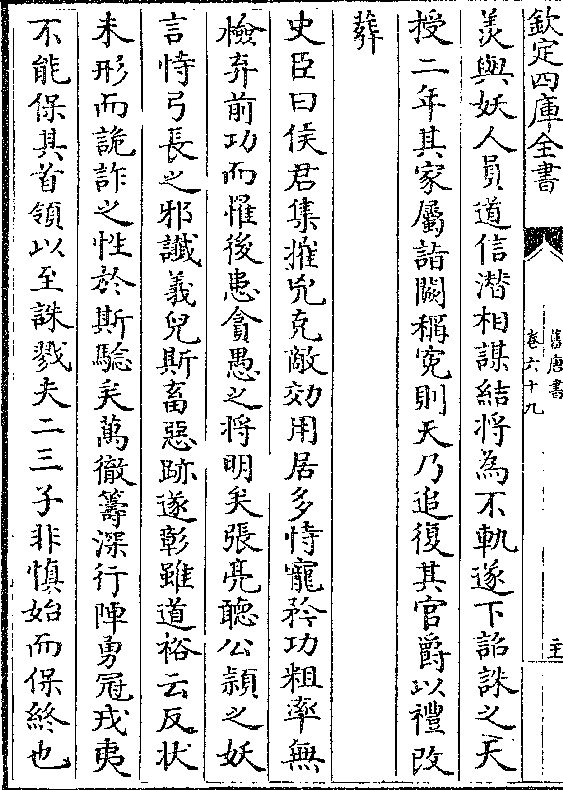 欽定四庫全書
舊唐書
卷六十九
羙與妖人員道信潛相謀結將為不軌遂下詔誅之天
授二年其家屬詣闕稱寃則天乃追復其官爵以禮改
葬
史臣曰侯君集摧兇克敵効用居多恃寵矜功粗率無
檢弃前功而罹後患貪愚之將明矣張亮聽公潁之妖
言恃弓長之邪讖義兒斯畜惡跡遂彰雖道裕云反狀
未形而詭詐之性於斯驗矣萬徹籌深行陣勇冠戎夷
不能保其首領以至誅戮夫二三子非慎始而保終也